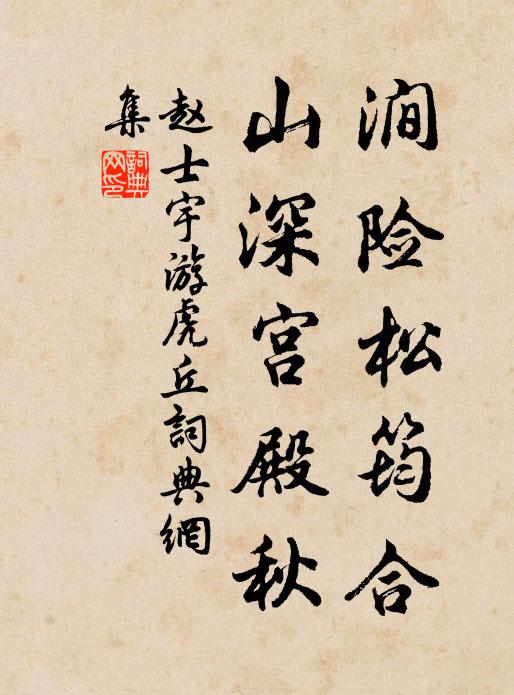 涧险松筠合
山深宫殿秋
赵士宇游虎丘詞典網
集
詞典
网印